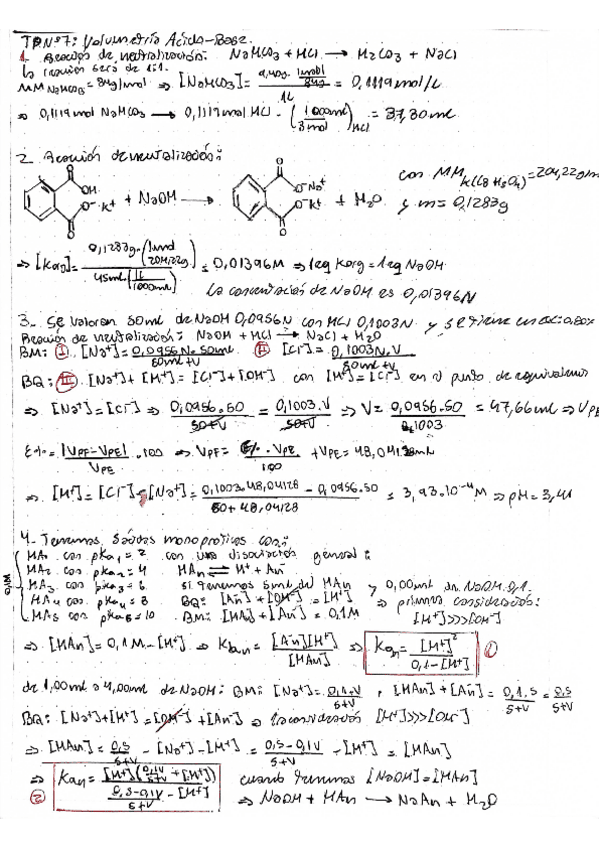 TP Nº7: Volumetría Acido-Base.
1. Reacción de neutralización: NaHCO3 + HCl → H2CO3 + NaCl
la reacción será de 1:1.
MM NaHCO3 = 84g/mol ⇒ [NaHCO3] = = 0,1119 mol/L
1L
⇒ 0,1119 mol NaHCO3 → 0,1119 mol HCl · (1000ml / 3mol) HCl = 37,30 ml
2. Reacción de neutralización:
O OH O⁻K⁺ O + NaOH → O O⁻Na⁺ O⁻K⁺ O + H2O
con MM K(C8H5O4) = 204,22g/mol
y m = 0,1283g
⇒ [Kag] = 0,1283g·(1mol / 204,22g) / 45ml·(1L / 1000ml) = 0,01396M ⇒ 1eq Karg = 1eq NaOH
la concentración de NaOH es 0,01396N
3. Se valoran 50ml de NaOH 0,0956N con HCl 0,1003N y se tiene un 0.80%
Reacción de neutralización: NaOH + HCl → NaCl + H2O
BM: I [Na⁺] = 0,0956N·50ml / 50ml+V II [Cl⁻] = 0,1003N·V / 50ml+V
BQ: III [Na⁺] + [H⁺] = [Cl⁻] + [OH⁻] con [H⁺] = [Cl⁻] en el punto de equivalencia
⇒ [Na⁺] = [Cl⁻] ⇒ 0,0956·50 / 50+V = 0,1003·V / 50+V ⇒ V = 0,0956·50 / 0,1003 = 47,66ml ⇒ VPE
E% = |VPF-VPE| / VPE · 100 ⇒ VPF = E%·VPE / 100 + VPE = 48,04128ml
⇒ [H⁺] = [Cl⁻] - [Na⁺] = 0,1003·48,04128 - 0,0956·50 / 50+48,04128 = 3,93·10⁻⁴M ⇒ pH = 3,41
4. Tenemos 5ácidos monopróticos con:
0,1M
HA1 con pKa1 = 2 con una disociación general:
HA2 con pKa2 = 4 HAn ⇌ H⁺ + An⁻
HA3 con pKa3 = 6 si tenemos 5ml de HAn y 0,00ml de NaOH 0,1
HA4 con pKa4 = 8 BQ: [An⁻] + [OH⁻] = [H⁺] ⇒ primera consideración:
HA5 con pKa5 = 10 BM: [HAn] + [An⁻] = 0,1M [H⁺]>>>[OH⁻]
⇒ [HAn] = 0,1M - [H⁺] ⇒ Kan = [An⁻][H⁺] / [HAn] ⇒ Kan = [H⁺]² / 0,1-[H⁺] 1
de 1,00ml a 4,00ml de NaOH: BM: [Na⁺] = 0,1·V / 5+V, [HAn] + [An⁻] = 0,1·5 / 5+V = 0,5 / 5+V
BQ: [Na⁺] + [H⁺] = [OH⁻] + [An⁻] ⇒ la consideración [H⁺]>>>[OH⁻]
⇒ [HAn] = 0,5 / 5+V - [Na⁺] - [H⁺] = 0,5-0,1V / 5+V - [H⁺] = [HAn]
⇒ Kan = [H⁺](0,1V / 5+V + [H⁺]) / 0,5-0,1V / 5+V - [H⁺] cuando tenemos [NaOH] = [HAn]
2 ⇒ NaOH + HAn → NaAn + H2O